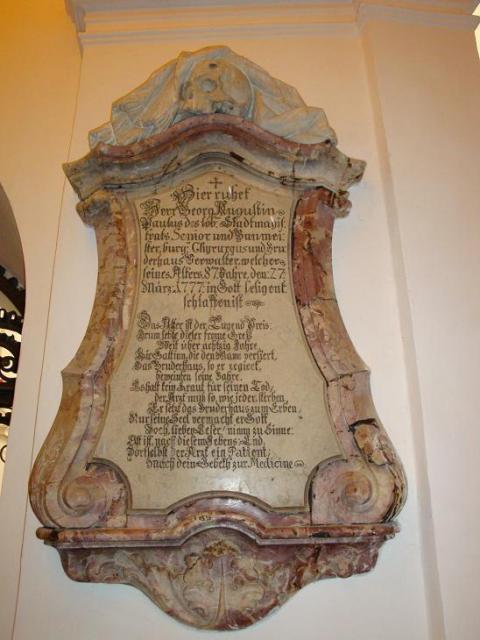 Hier ruhet
Herr Georg Augustin
Paulus des löb: Stadtmagist
trats Senior und Baumei=
ster, burg: Chyrurgus und Bru=
derhaus Verwalter, welcher
seines Alters 87 Jahre, den: 27
März. 1777. in Gott selig ent
schlaffen ist
Das Alter ist der Tugend Preis:
Drum lebte dieser frome Greis
Weit über achtzig Jahre.
Die Gattinn, die den Mann verliert,
Das Bruderhaus, so er regiert,
beweinten seine Bahre.
Es half kein Kraut für seinen Tod,
der Arzt muß so, wie jeder, sterben,
Er setzt das Bruderhaus zum Erben,
Nur seine Seel vermacht er Gott
Doch, lieber Leser, nimm zu Sinne:
Alt ist, nach diesem Lebens=End,
Dortselbst der Arzt ein Patient,
Mach dein Gebeth zur Medicine